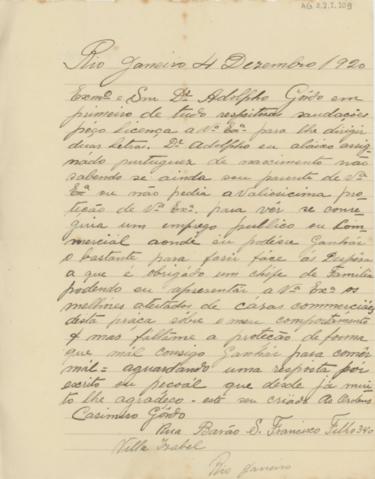 AG 2.2.2.109
Rio Janeiro 4 Dezembro 1920
Exmº e Snr Dr. Adolpho Gôrdo em
primeiro de tudo respeitosas saudações
peço licença a Vª Exª para lhe dirigir
duas letras. Dr. Adolpho eu abaixo assig-
nádo portuguez de nascimento não
sabendo se ainda sou parente de Vª
Exª eu não pedia a Valiosissima pro
teção de Vª Exª para vêr se conse
guia um emprego publico ou Com-
mercial aonde eu podese Ganhar
o bastante para fasir face ás Despesas
a que é obrigado um chefe de Familia
podendo eu apresentar a Vª Exª os
melhores atestados de cásas commerciáes
desta práca sôbre o meu comportamento
mas faltame a proteção de forma
que mal consigo Ganhár para comêr
mál = aguardando uma resposta pôr
escrito ou pecoal que desde já mui
to lhe agradeço - este seu criado As Ordens
Casimiro Gôrdo
Rua Barão S. Francisco Filho 340
Villa Izabel
Rio Janeiro